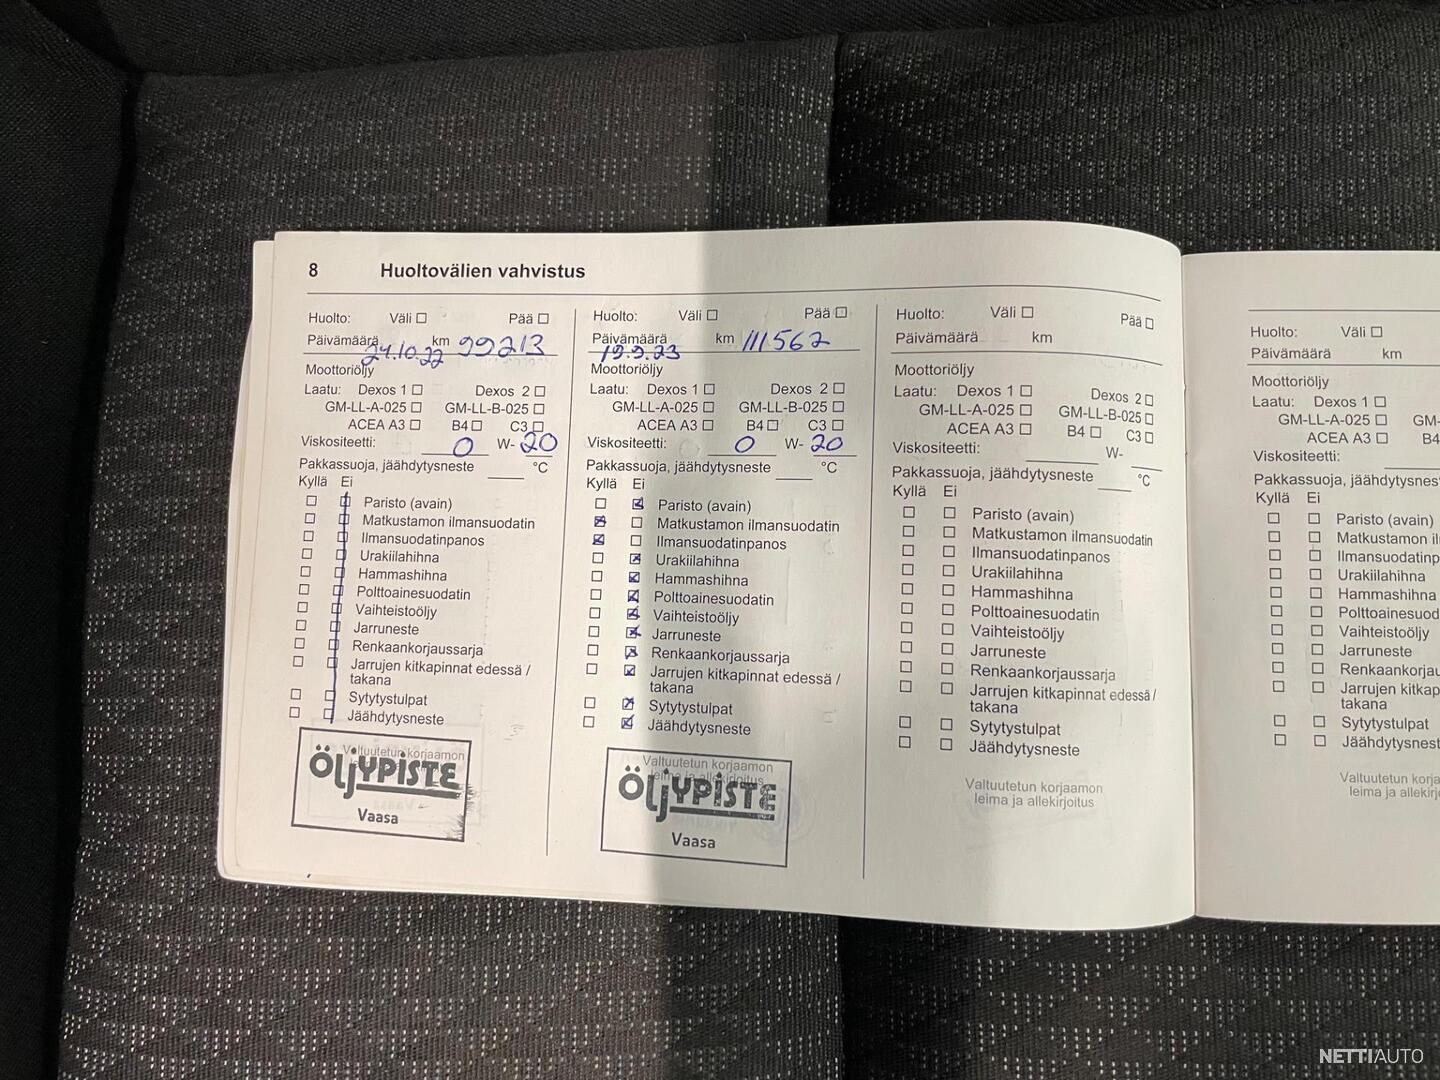 8 Huoltovälien vahvistus
Huolto: Väli Pää
Päivämäärä 24.10.22 km 99213
Moottoriöljy
Laatu: Dexos 1 Dexos 2
GM-LL-A-025 GM-LL-B-025
ACEA A3 B4 C3
Viskositeetti: 0 W- 20
Pakkassuoja, jäähdytysneste °C
Kyllä Ei
Paristo (avain)
Matkustamon ilmansuodatin
Ilmansuodatinpanos
Urakiilahihna
Hammashihna
Polttoainesuodatin
Vaihteistoöljy
Jarruneste
Renkaankorjaussarja
Jarrujen kitkapinnat edessä /
takana
Sytytystulpat
Jäähdytysneste
Valtuutetun korjaamon
ÖljYPISTE
Vaasa
Huolto: Väli Pää
Päivämäärä 19.9.23 km 111562
Moottoriöljy
Laatu: Dexos 1 Dexos 2
GM-LL-A-025 GM-LL-B-025
ACEA A3 B4 C3
Viskositeetti: 0 W- 20
Pakkassuoja, jäähdytysneste °C
Kyllä Ei
Paristo (avain)
Matkustamon ilmansuodatin
Ilmansuodatinpanos
Urakiilahihna
Hammashihna
Polttoainesuodatin
Vaihteistoöljy
Jarruneste
Renkaankorjaussarja
Jarrujen kitkapinnat edessä /
takana
Sytytystulpat
Jäähdytysneste
Valtuutetun korjaamon
leima ja allekirjoitus
ÖljYPISTE
Vaasa
Huolto: Väli Pää
Päivämäärä km
Moottoriöljy
Laatu: Dexos 1 Dexos 2
GM-LL-A-025 GM-LL-B-025
ACEA A3 B4 C3
Viskositeetti: W-
Pakkassuoja, jäähdytysneste °C
Kyllä Ei
Paristo (avain)
Matkustamon ilmansuodatin
Ilmansuodatinpanos
Urakiilahihna
Hammashihna
Polttoainesuodatin
Vaihteistoöljy
Jarruneste
Renkaankorjaussarja
Jarrujen kitkapinnat edessä /
takana
Sytytystulpat
Jäähdytysneste
Valtuutetun korjaamon
leima ja allekirjoitus
Huolto: Väli
Päivämäärä km
Moottoriöljy
Laatu: Dexos 1
GM-LL-A-025 GM-
ACEA A3 B4
Viskositeetti:
Pakkassuoja, jäähdytysnes
Kyllä Ei
Paristo (avain)
Matkustamon il
Ilmansuodatinp
Urakiilahihna
Hammashihna
Polttoainesuod
Vaihteistoöljy
Jarruneste
Renkaankorjau
Jarrujen kitkap
takana
Sytytystulpat
Jäähdytysnest
Valtuutetun korja
leima ja allekirj
NETTIAUTO